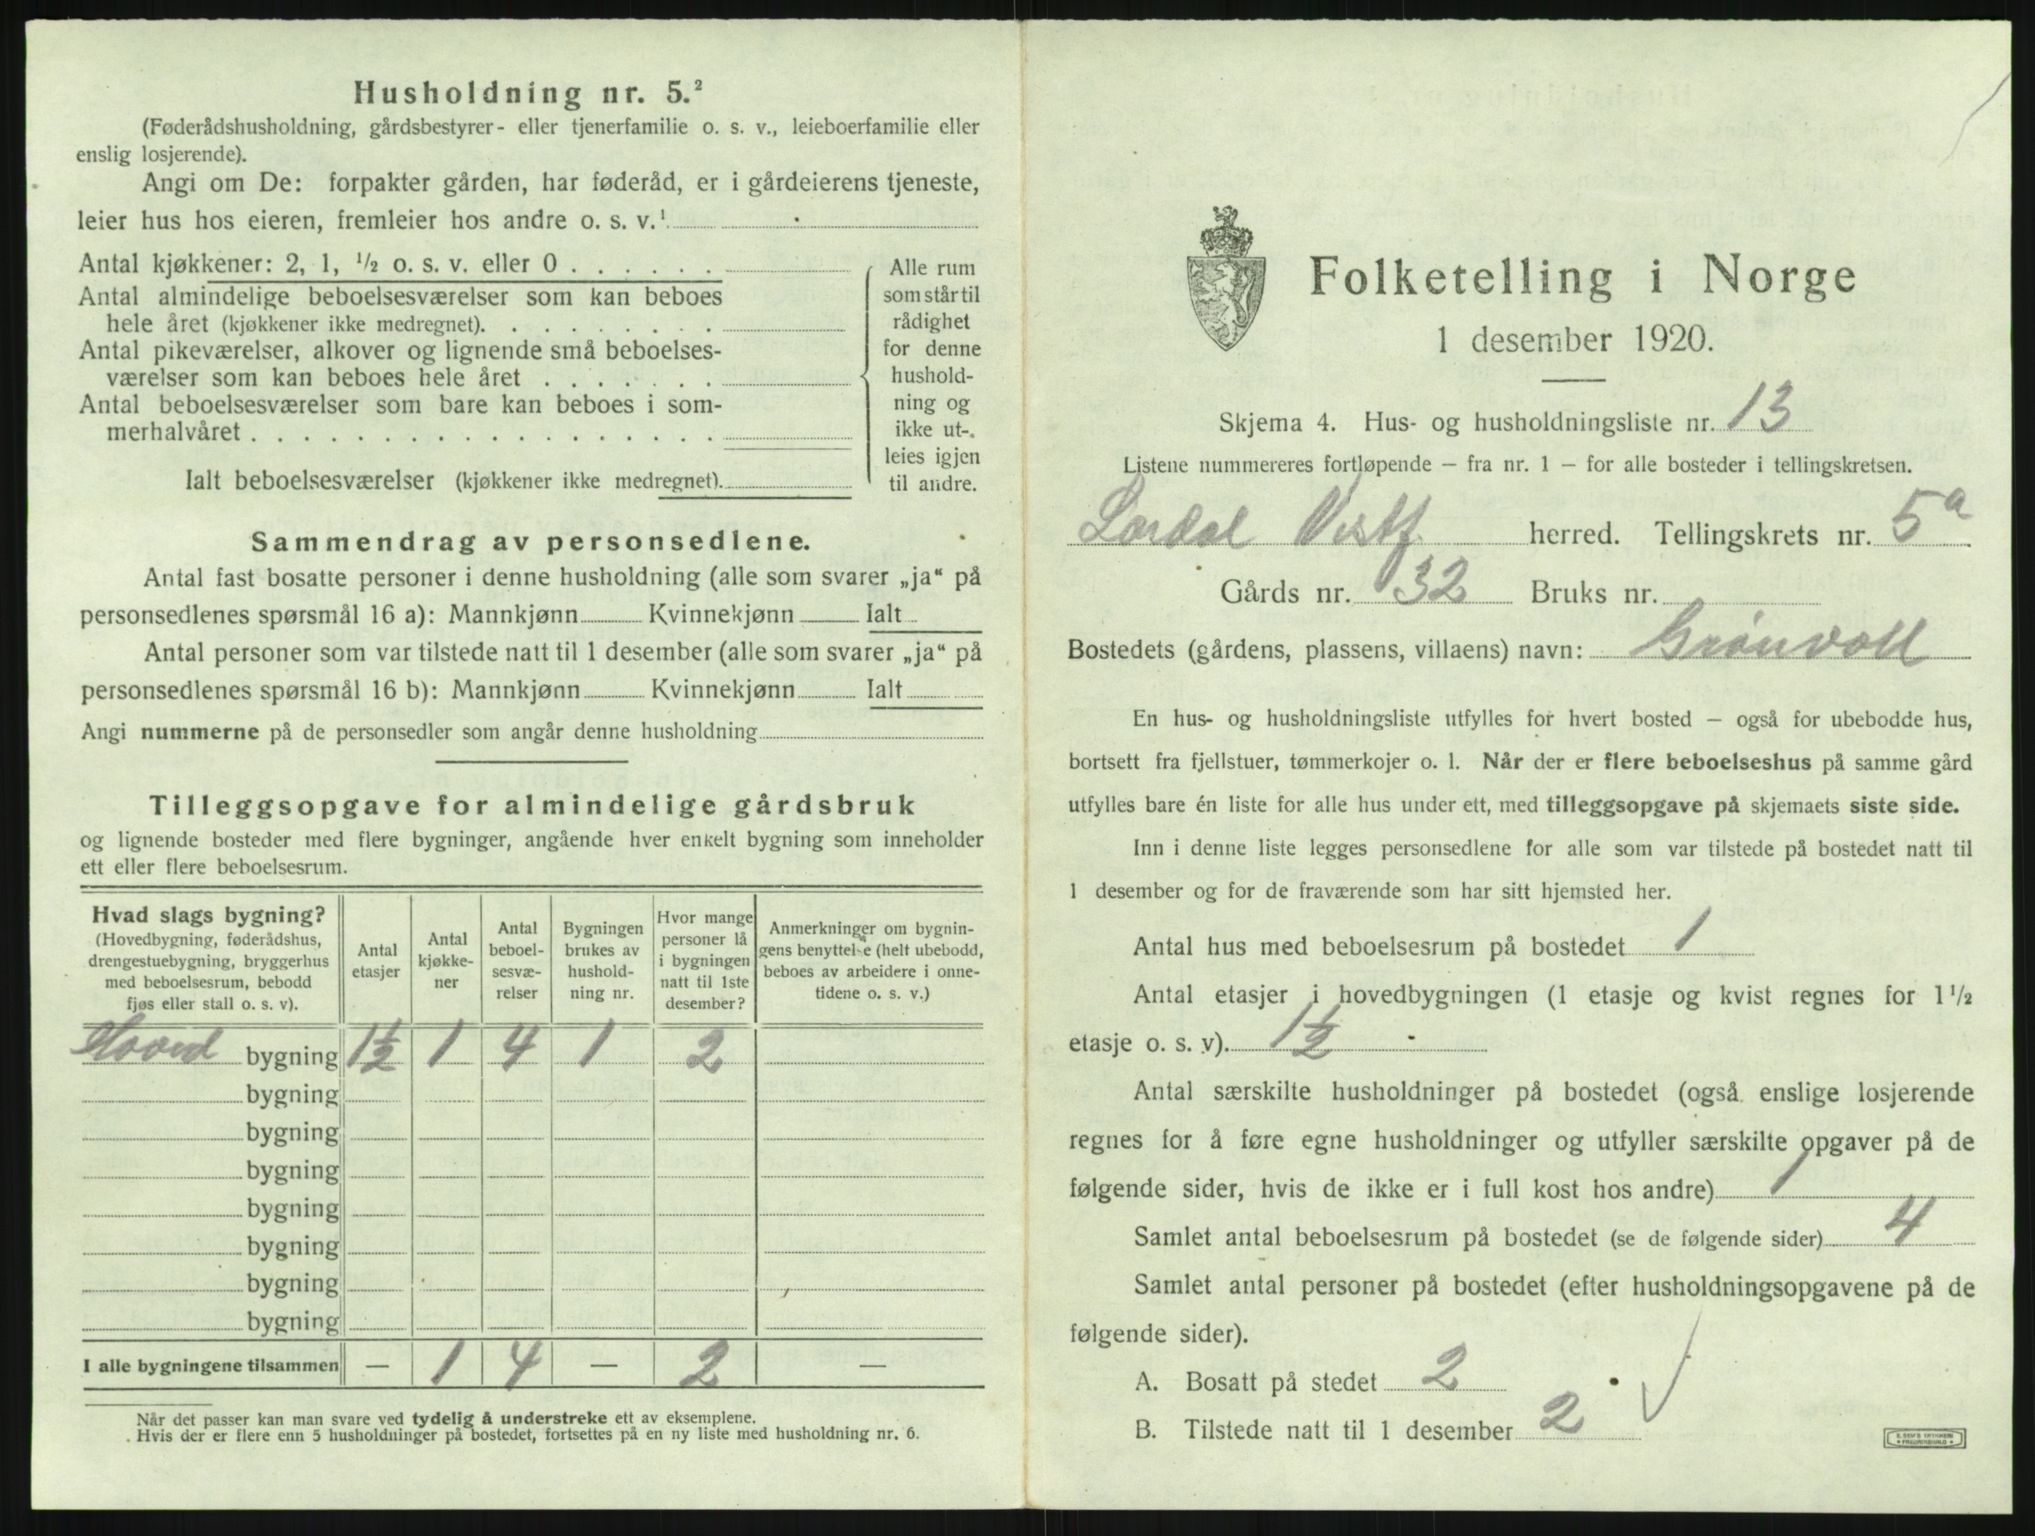 Husholdning nr. 5.²
(Føderådshusholdning, gårdsbestyrer- eller tjenerfamilie o. s. v., leieboerfamilie eller
enslig losjerende).
Angi om De: forpakter gården, har føderåd, er i gårdeierens tjeneste,
leier hus hos eieren, fremleier hos andre o. s. v.¹
Antal kjøkkener: 2, 1, ½ o. s. v. eller 0 . . . . . .
Antal almindelige beboelsesværelser som kan beboes
hele året (kjøkkener ikke medregnet). . . . . . . . .
Antal pikeværelser, alkover og lignende små beboelses-
værelser som kan beboes hele året . . . . . . .
Antal beboelsesværelser som bare kan beboes i som-
merhalvåret . . . . . . . . . . . . . . . . . .
Ialt beboelsesværelser (kjøkkener ikke medregnet).
Alle rum
som står til
rådighet
for denne
hushold-
ning og
ikke ut-
leies igjen
til andre.
Sammendrag av personsedlene.
Antal fast bosatte personer i denne husholdning (alle som svarer „ja“ på
personsedlenes spørsmål 16 a): Mannkjønn Kvinnekjønn Ialt
Antal personer som var tilstede natt til 1 desember (alle som svarer „ja“ på
personsedlenes spørsmål 16 b): Mannkjønn Kvinnekjønn Ialt
Angi nummerne på de personsedler som angår denne husholdning
Tilleggsopgave for almindelige gårdsbruk
og lignende bosteder med flere bygninger, angående hver enkelt bygning som inneholder
ett eller flere beboelsesrum.
Hvad slags bygning?
(Hovedbygning, føderådshus,
drengestuebygning, bryggerhus
med beboelsesrum, bebodd
fjøs eller stall o. s. v).
Antal
etasjer
Antal
kjøkke-
ner
Antal
beboel-
sesvæ-
relser
Bygningen
brukes av
hushold-
ning nr.
Hvor mange
personer lå
i bygningen
natt til 1ste
desember?
Anmerkninger om bygnin-
gens benyttelse (helt ubebodd,
beboes av arbeidere i onne-
tidene o. s. v.)
Hoved bygning 1½ 1 4 1 2
bygning
bygning
bygning
bygning
bygning
bygning
bygning
I alle bygningene tilsammen — 1 4 — 2 —
Når det passer kan man svare ved tydelig å understreke ett av eksemplene.
Hvis der er flere enn 5 husholdninger på bostedet, fortsettes på en ny liste med husholdning nr. 6.
Folketelling i Norge
1 desember 1920.
Skjema 4. Hus- og husholdningsliste nr. 13
Listene nummereres fortløpende — fra nr. 1 — for alle bosteder i tellingskretsen.
Lardal Vestf. herred. Tellingskrets nr. 5a
Gårds nr. 32 Bruks nr.
Bostedets (gårdens, plassens, villaens) navn: Grønvoll
En hus- og husholdningsliste utfylles for hvert bosted — også for ubebodde hus,
bortsett fra fjellstuer, tømmerkojer o. l. Når der er flere beboelseshus på samme gård
utfylles bare én liste for alle hus under ett, med tilleggsopgave på skjemaets siste side.
Inn i denne liste legges personsedlene for alle som var tilstede på bostedet natt til
1 desember og for de fraværende som har sitt hjemsted her.
Antal hus med beboelsesrum på bostedet 1
Antal etasjer i hovedbygningen (1 etasje og kvist regnes for 1½
etasje o. s. v). 1½
Antal særskilte husholdninger på bostedet (også enslige losjerende
regnes for å føre egne husholdninger og utfyller særskilte opgaver på de
følgende sider, hvis de ikke er i full kost hos andre) 1
Samlet antal beboelsesrum på bostedet (se de følgende sider) 4
Samlet antal personer på bostedet (efter husholdningsopgavene på de
følgende sider).
A. Bosatt på stedet 2
B. Tilstede natt til 1 desember 2